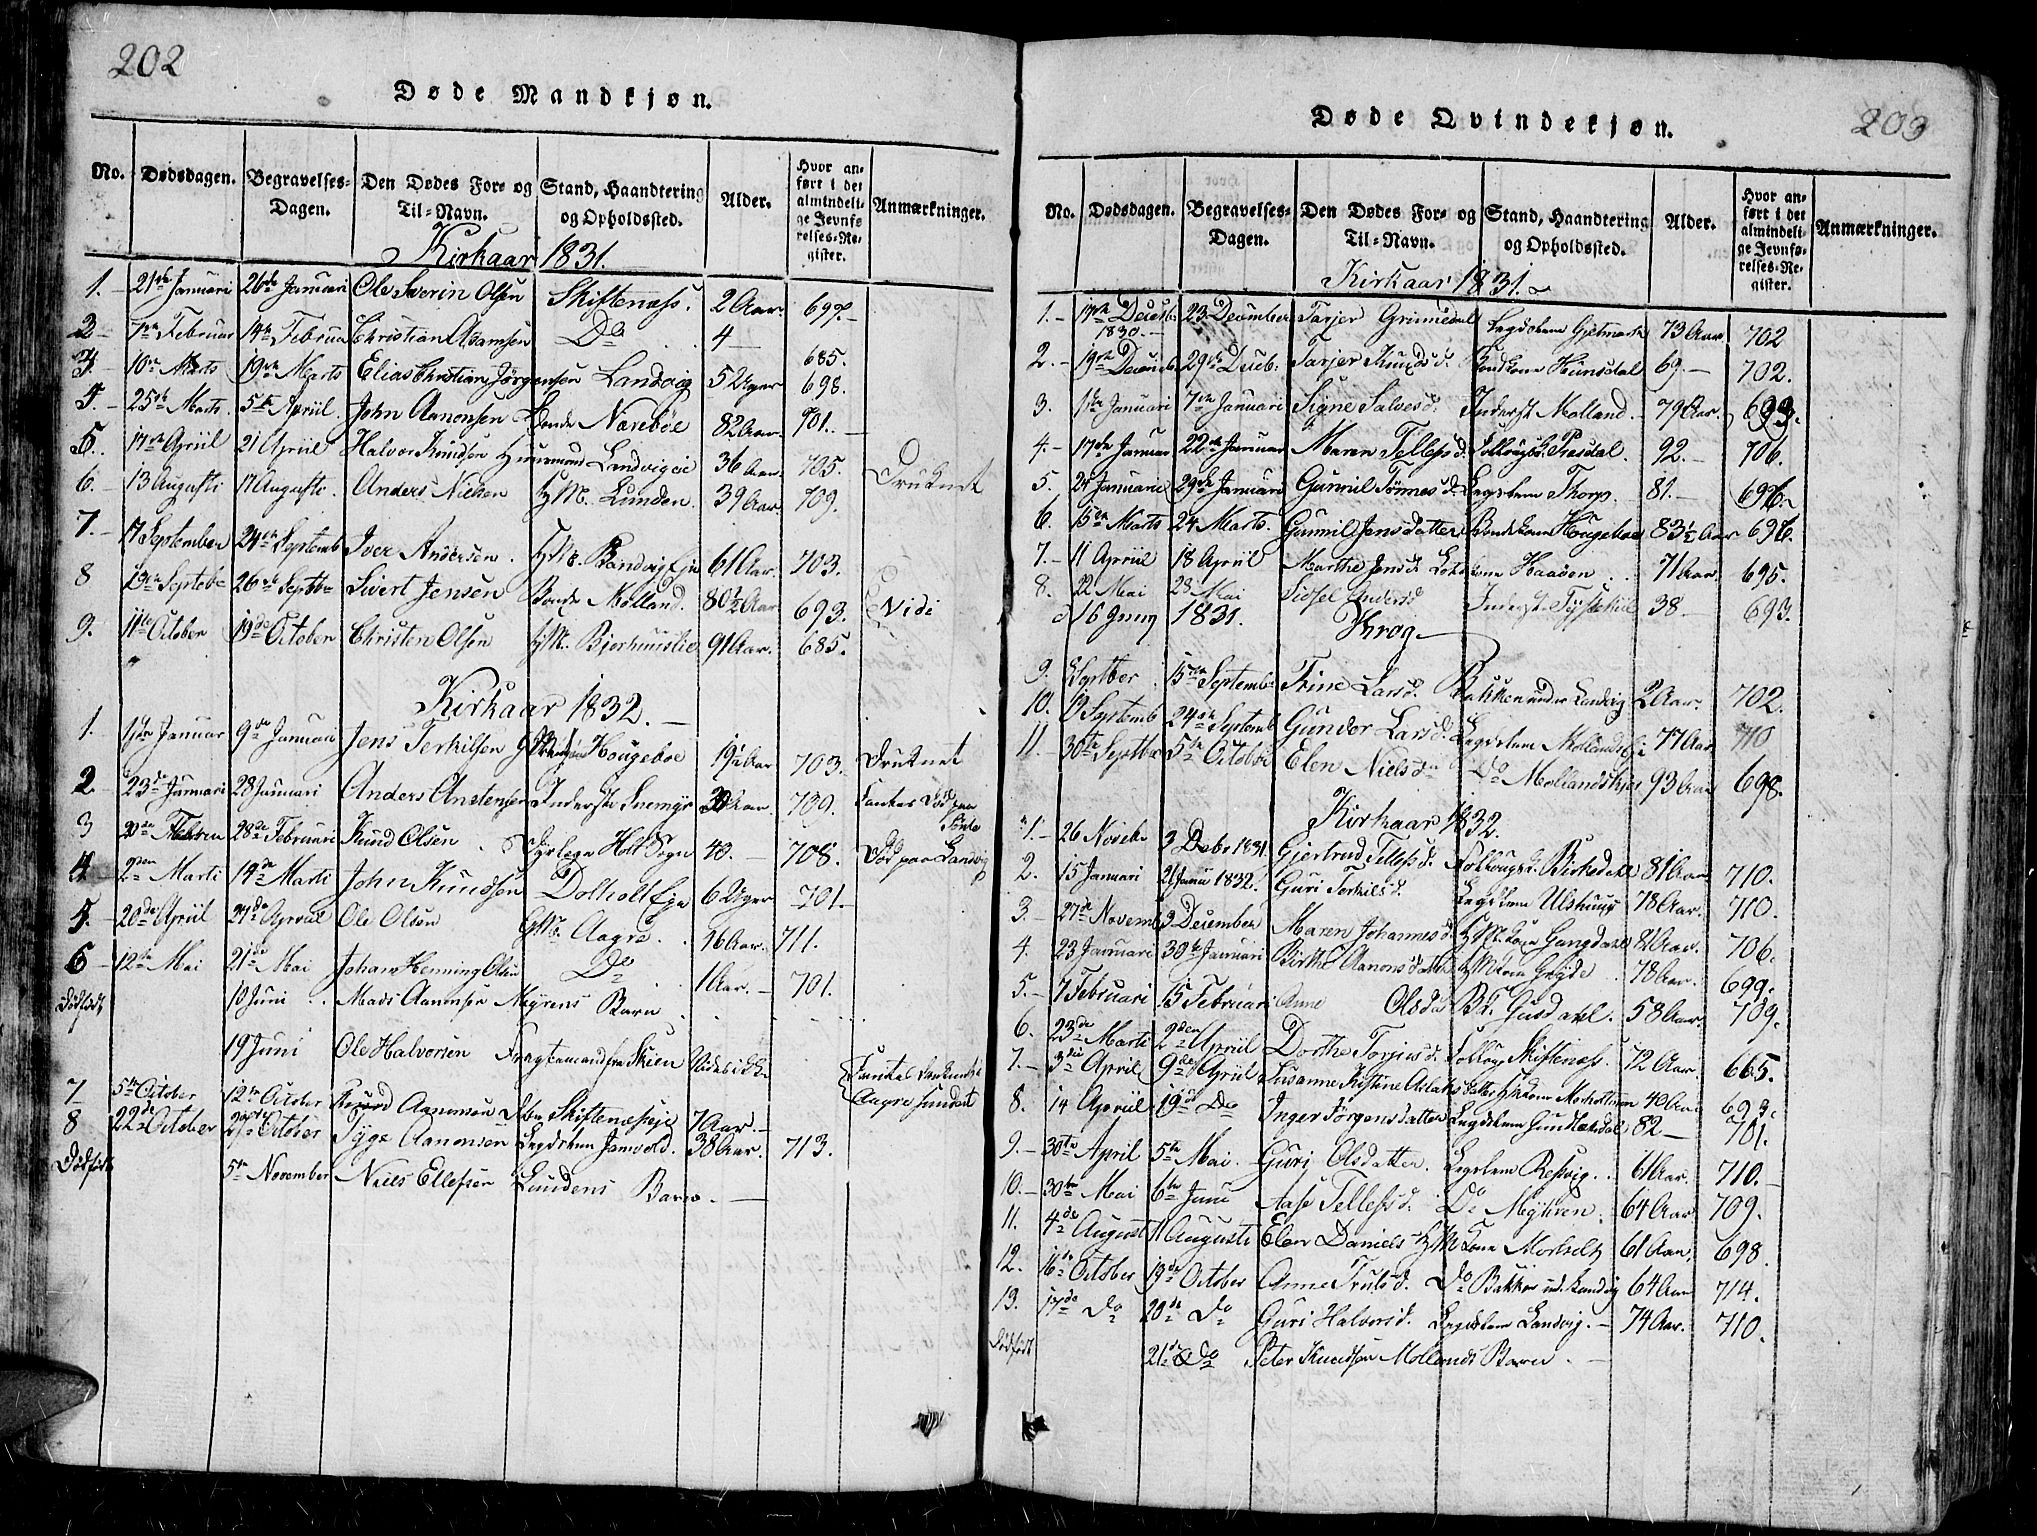 202
Døde Mandkjøn.
No. Dødsdagen. Begravelses-Dagen. Den Dødes For- og Til-Navn. Stand, Haandtering og Opholdssted. Alder. Hvor anført i det almindelige Jevnførelses-Register. Anmærkninger.
Kirkaar 1831.
1. 21de Januari 26de Januari Ole Sverin Olsen Skiftenæss. 2 Aar 697.
2 7de Februar 14de Februa Christian Adamsen Do 4 685.
3. 10de Marts 19de Marts Elias Christian Jörgensen Landvig 5 Uger 698.
4. 25de Marts 5te Apriil John Aanonsen Bonde Nareböe 82 Aar 701.
5. 17de Apriil 21 Apriil Halvor Knudsen Huusmand Landvigeie 36 Aar 705. Druknet
6. 13 Augusti 17 Augusti Anders Nielsen HM. Lunden. 39 Aar 709.
7. 17 September 24de Septemb Iver Andersen HM. Landvig Eje 61 Aar. 703.
8 19de Septeb 26de Septbr Sivert Jensen Bonde Molland. 80½ Aar 693. Nidi
9. 11te October 19de October Christen Olsen HM. Bjorhuuslie 91 Aar. 685.
Kirkaar 1832.
1. 1ste Januar 9de Januari Jens Terkilsen Hougeboe 19½ Aar 703. Druknet
2. 23de Januari 28 Januari Anders Anstensen Inderste Snemyr 30 Aar. 709. Fanken Död paa
3 20de Febru 28de Februari Knud Olsen Holt Sogn 40. 708. Död paa Landvig
4 2den Marti 14de Marti John Knudsen Dolholt Eje 6 Uger 701.
5. 20de Apriil 27de Apriil Ole Olsen GM. Aagre. 16 Aar. 711.
6 12te Mai 21de Mai Johan Henning Olsen Do 1 Aar. 701.
Dödfödt 10 Juni Mads Aanonsen Myrens Barn
19 Juni Ole Halvorsen Fragtemand fra Skien Vides ikke Funden
7 5te October 12te October Knud Aanonsen Skiftenæseje 7 Aar. Aagre sundet
8 22de October 27de October Tÿge Aanonsen Legdslem Jomvold. 38 Aar. 713.
Dödfödt 5te November Niels Ellefsen Lundens Barn.
203
Døde Qvindekjøn.
No. Dødsdagen. Begravelses-Dagen. Den Dødes For- og Til-Navn. Stand, Haandtering og Opholdssted. Alder. Hvor anført i det almindelige Jevnførelses-Register. Anmærkninger.
Kirkaar 1831.
1. 17de Decemb 1830. 23 December Tarjer Grimedal Legdslem Gjetmark 73 Aar 702
2. 19de Decemb 29de Deceb: Tarjer Knudsd. Bondkone Huusdal 69. 702.
3. 1ste Januari 7de Januari Signe Salvesd. Inderst. Molland. 79 Aar.
4. 17de Januar 22de Januar Maren Tellefsd. Folkougsk. Præsdal. 92. 706.
5. 24 Januarii 29de Januari Gunvil Tönnesd. Legdslem Thorp. 81. 696.
6. 15de Marts 24 Marts. Gunnil Jensdatter Bondekone Hougeboe 83½ Aar 696.
7. 11 Apriil 18 Apriil Marthe Jensd. kone Haaven 71 Aar 695.
8. 22 Mai 28 Mai Sidsel Andersd Inderst. 38. 693.
d 16 Juny 1831. Krog
9. Septber 15de Septemb Trine Larsd. Bakken under Landvig 2 Aar. 702.
10. 19 Septemb 24de Septemb Gunder Larsd. Legdslem Mollandseje 77 Aar 710
11. 30te Septbr 5te October Elen Nielsd Do Mollandskjær 93 Aar 698.
Kirkaar 1832.
1. 26 Novebr 3 Debr 1831 Gjertrud Tellefsd. Folkougsk. Birkedahl 81 Aar 710.
2. 15 Januari 21 Janu 1832. Guri Terkilsd. Legdslem Ulshuug 78 Aar. 710.
3. 27de Novemb 3 December Maren Johannesd. HM. kone Gangdahl 81 Aar. 706.
4. 23 Januari 30te Januari Birthe Aanonsdatter HM kone Gröjde 78 Aar. 699.
5. 7 Februari 15 Februari Anne Olsda Bk. Gusdahl. 58 Aar. 709.
6. 23de Marti 2den Apriil Dorthe Torjusd. Folkoug Skiftenæss. 72 Aar. 665.
7. 3die April 9de Apriil Susanne Kistine Atlaksdatter HM kone Morholtmoen 40 Aar 693.
8. 14 Apriil 19de Do Inger Jörgensdatter Legdslem Gundleksdal 82 701.
9. 30te April 5te Mai. Guri Olsdatter. Legslem Resvig. 61 Aar. 710.
10. 30te Mai 6te Juni Aase Tellefsd. Do Myhren. 64 Aar 709.
11. 4de August 11 Augusti Elen Daniels HM kone Morholt 61 Aar. 698.
12. 16de October 19de October Anne Trulsd. Do Bakken und. Landvig 64 Aar 714.
13. 17de Do 20de Do Guri Halvorsd. Legdslem Landvig. 74 Aar. 710.
Dödfödt 21de Do Peter Knudsen Mollands Barn.